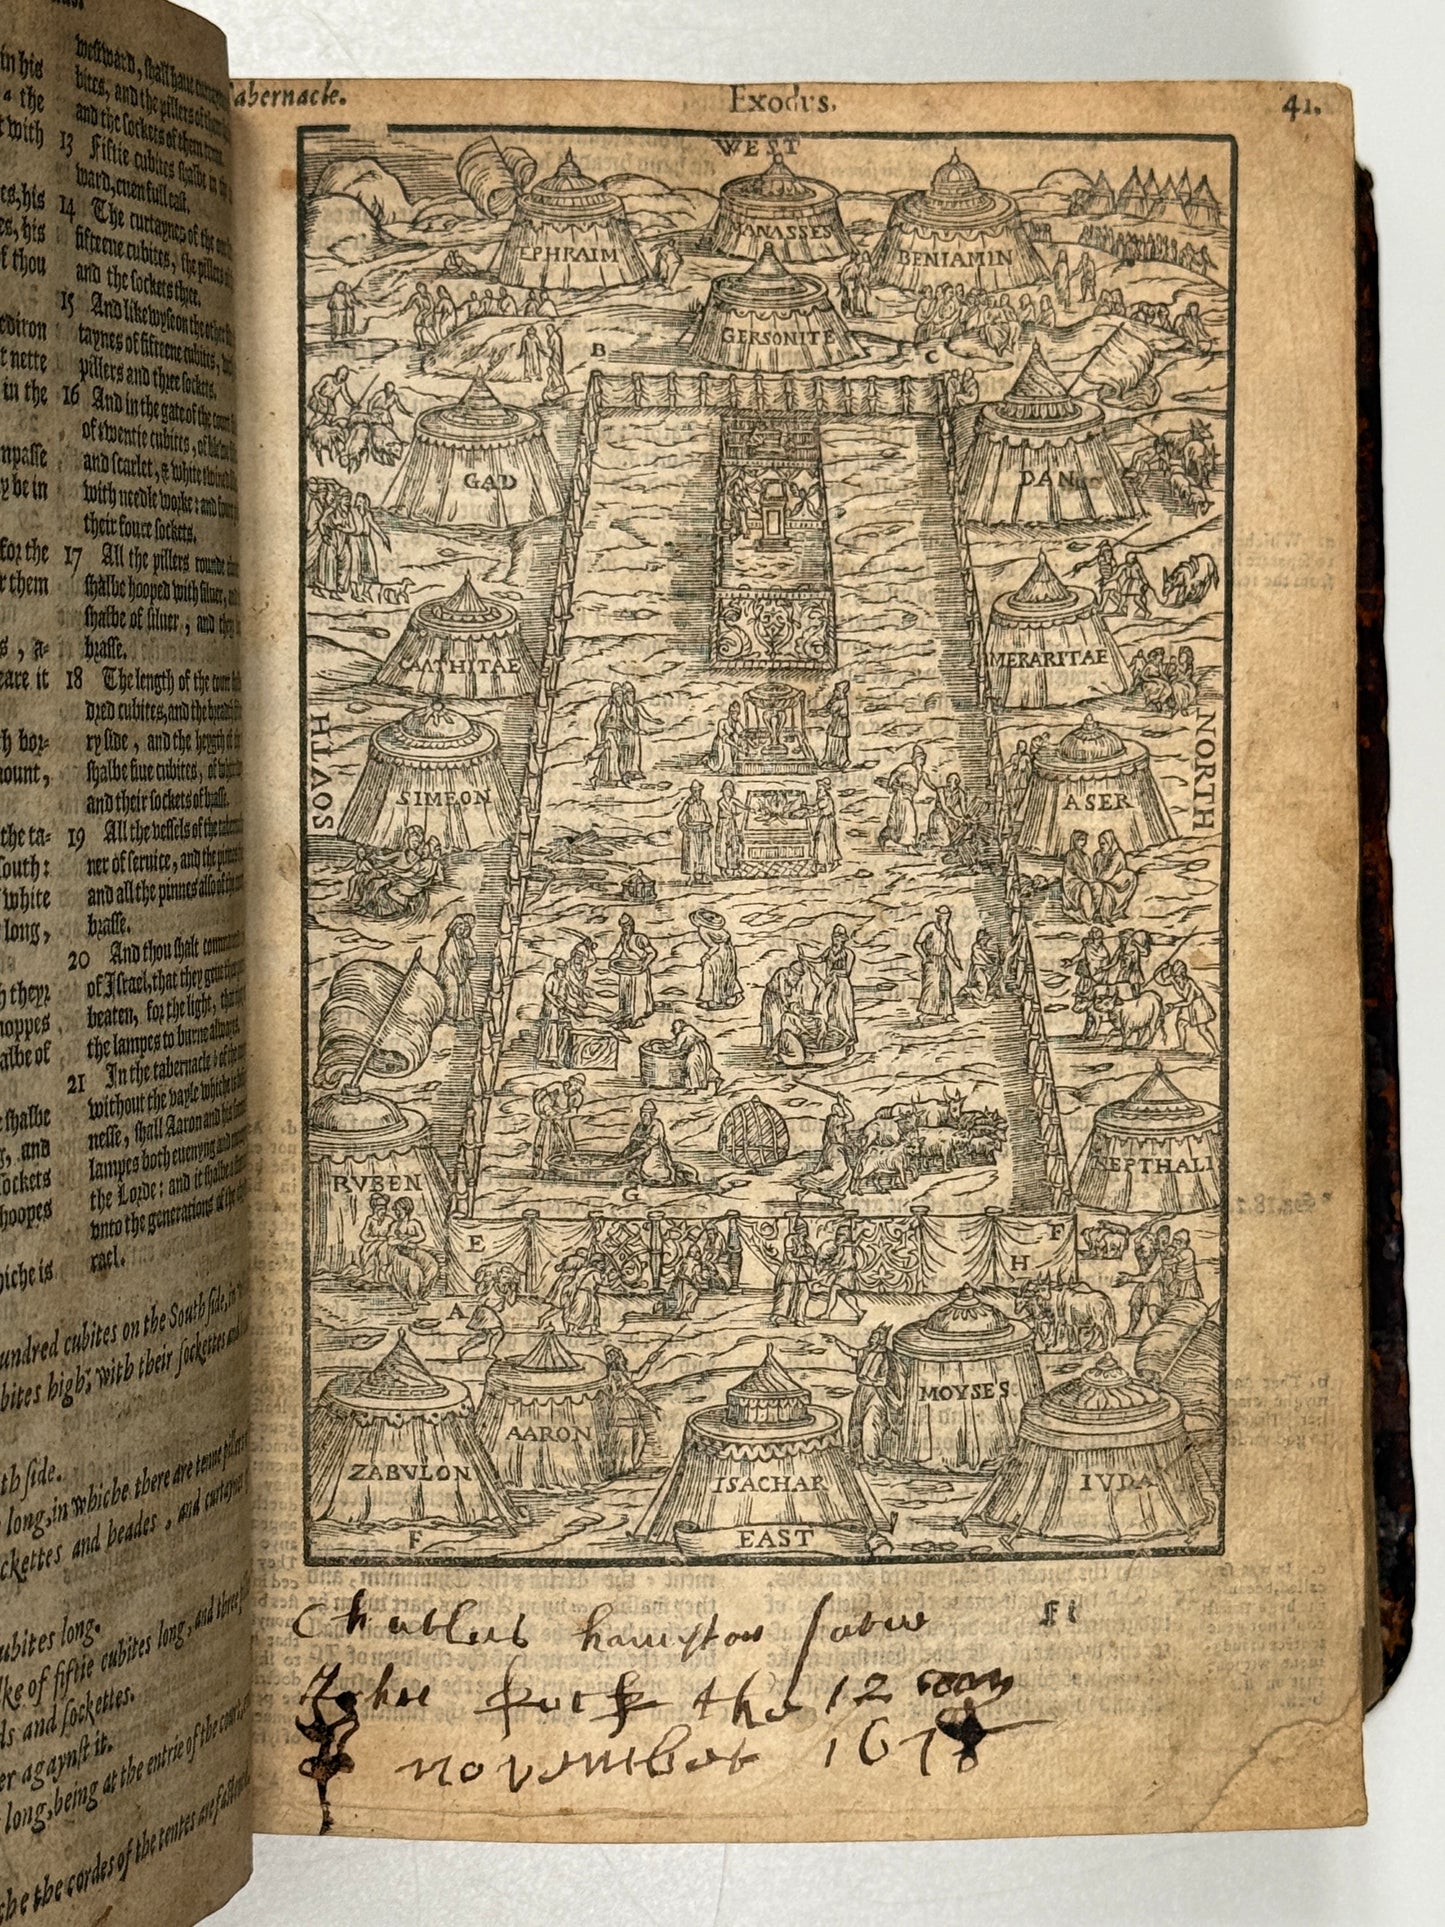 in his
a the
t with
es, his
es, his
f thou
ediron
t nette
in the
mpasse
y be in
for the
r them
s, a-
eare it
th bor-
mount,
the ta-
south:
white
long,
h theyr
hoppes
albe of
shalbe
, and
sockets
hoopes
hiche is
westward, shall haue curtaynes
bites, and the pillers of them
and the sockets of them tenne.
13 Fiftie cubites shalbe in the
ward, euen full east.
14 The curtaynes of the one
fifteene cubites, the pillers of
and the sockets three.
15 And likewyse on the other side
taynes of fifteene cubites,
pillers and three sockets.
16 And in the gate of the court
of twentie cubites, of blewe
and scarlet, & white twined
with needle worke: and foure
their foure sockets.
17 All the pillers rounde
shalbe hooped with siluer,
shalbe of siluer, and they
brasse.
18 The length of the court
dred cubites, and the breadth
ry side, and the heygth of
shalbe fiue cubites, of
and their sockets of brasse.
19 All the vessels of the tabernacle
ner of seruice, and the pinnes
and all the pinnes also of the
brasse.
20 And thou shalt commaunde
of Israel, that they geue thee
beaten, for the light, that
the lampes to burne alwayes.
21 In the tabernacle of the
without the vayle whiche is
nesse, shall Aaron and his sonnes
lampes both euenyng and
the Lorde: and it shalbe a
vnto the generations of the
rael.
undred cubites on the South side, in
bites high, with their sockettes and
th side.
long, in whiche there are tenne pillers
ckettes and beades, and curtaynes
ubites long.
ke of fiftie cubites long, and three
ds and sockettes.
er agaynst it.
long, being at the entrie of the court,
che the cordes of the tentes are fastened
Tabernacle. Exodus. 41.
WEST
EPHRAIM
MANASSES
BENIAMIN
GERSONITE
B
C
GAD
DAN
CAATHITAE
MERARITAE
SOVTH
NORTH
SIMEON
ASER
RVBEN
NEPTHALI
G
E
F
H
A
MOYSES
AARON
ZABVLON
ISACHAR
IVDA
F
EAST
F i
Charles hampton
the 12
november 167